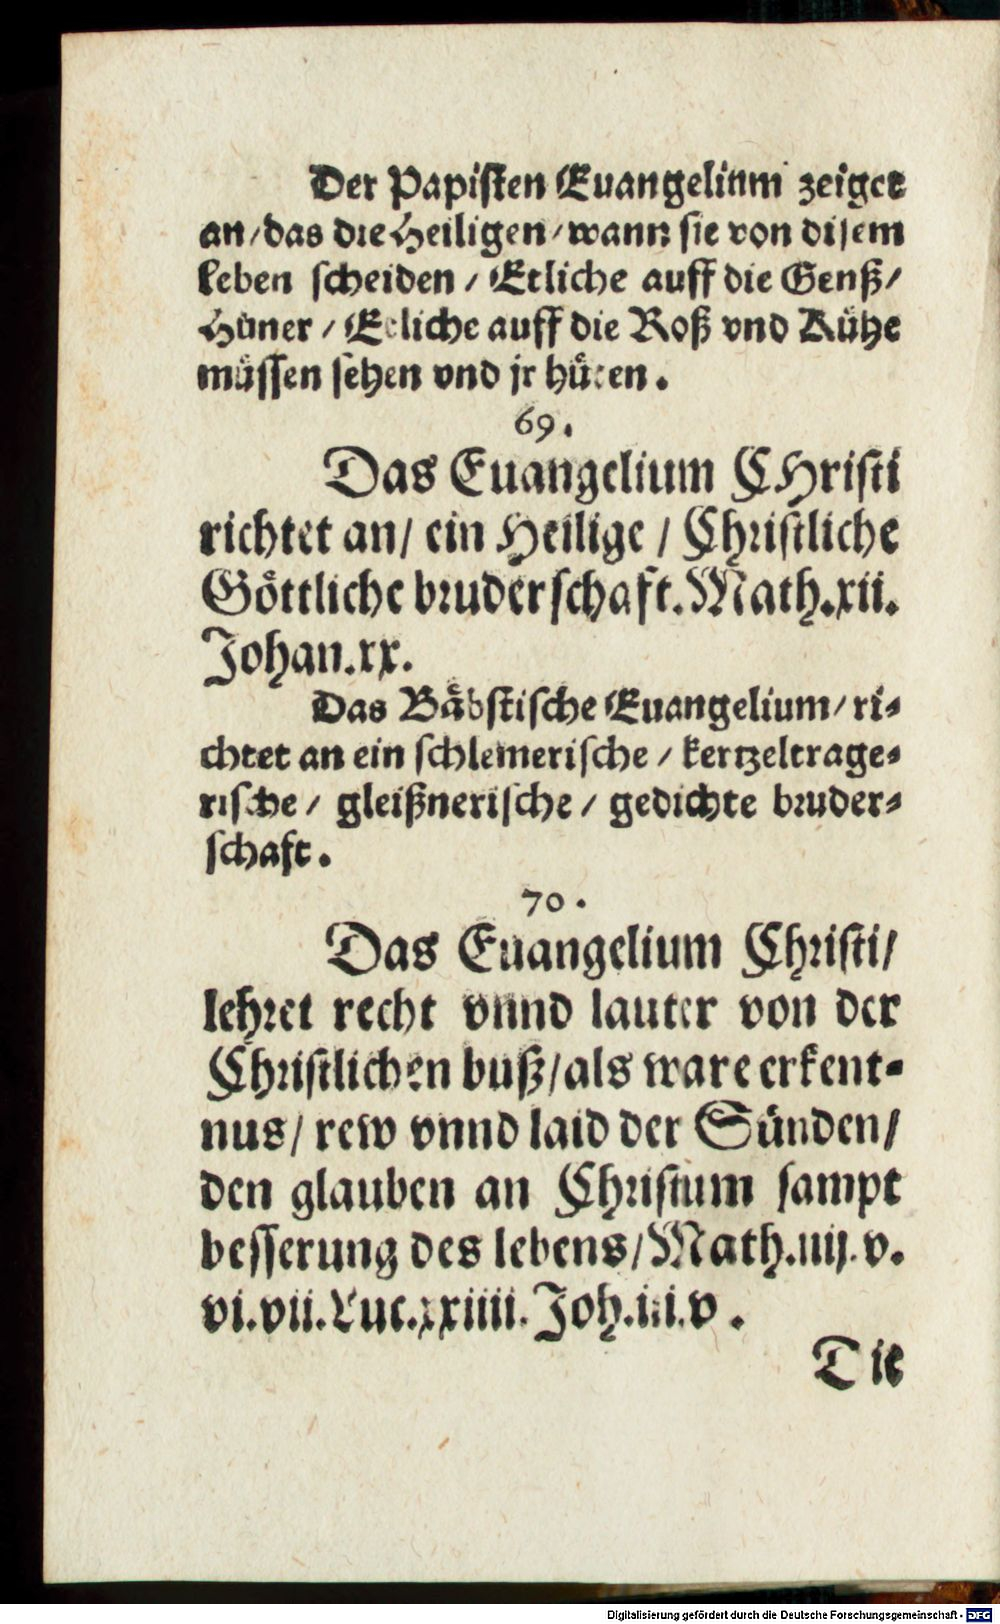 Der Papisten Euangelium zeiget
an/das die Heiligen/wann sie von disem
leben scheiden / Etliche auff die Genß/
Hüner / Etliche auff die Roß vnd Kühe
müssen sehen vnd jr hüten.
69.
Das Euangelium CHristi
richtet an/ ein Heilige / Christliche
Göttliche bruderschaft. Math.xii.
Johan.xx.
Das Bäbstische Euangelium/ ri-
chtet an ein schlemerische / kertzeltrage-
rische / gleißnerische / gedichte bruder-
schaft.
70.
Das Euangelium Christi/
lehret recht vnnd lauter von der
Christlichen buß/als ware erkent-
nus/ rew vnnd laid der Sünden/
den glauben an Christum sampt
besserung des lebens/Math.iiij.v.
vi.vii.Luc.xxiiii.Joh.iii.v.
Die
Digitalisierung gefördert durch die Deutsche Forschungsgemeinschaft - DFG